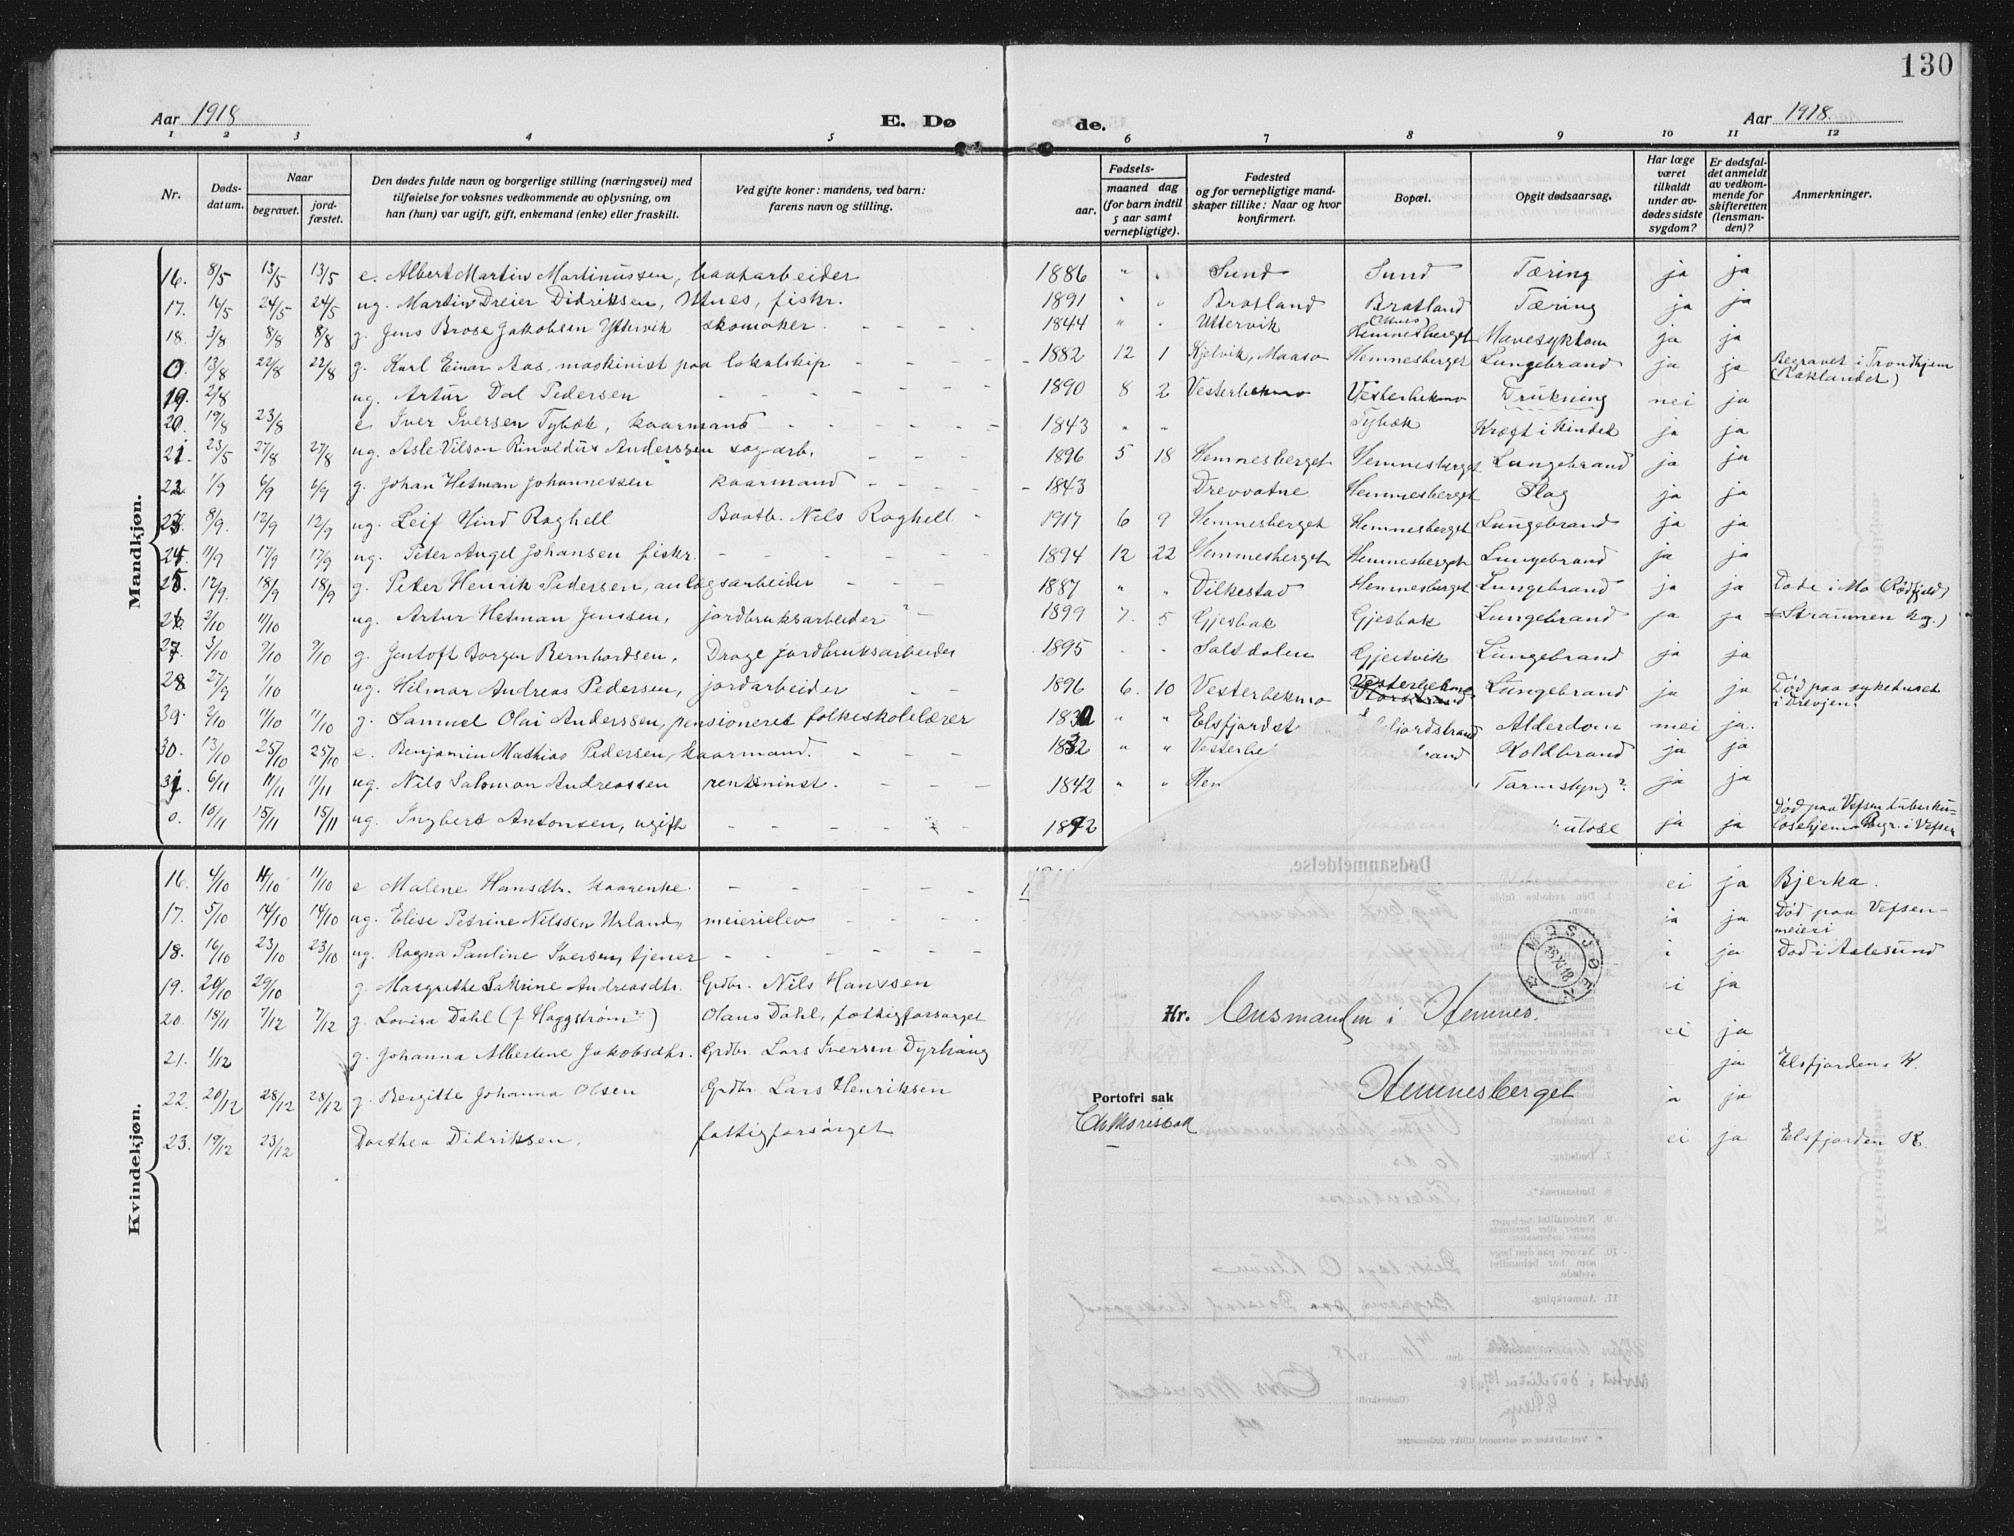 130
Aar 1918 E. Dø de. Aar 1918.
1 2 3 4 5 6 7 8 9 10 11 12
Nr. Døds-datum. Naar begravet. jord-fæstet. Den dødes fulde navn og borgerlige stilling (næringsvei) med tilføielse for voksnes vedkommende av oplysning, om han (hun) var ugift, gift, enkemand (enke) eller fraskilt. Ved gifte koner: mandens, ved barn: farens navn og stilling. Fødsels- aar. maaned dag (for barn indtil 5 aar samt vernepligtige). Fødested og for vernepligtige mand-skaper tillike: Naar og hvor konfirmert. Bopæl. Opgit dødsaarsag. Har læge været tilkaldt under av-dødes sidste sygdom? Er dødsfal-det anmeldt av vedkom-mende for skifteretten (lensman-den)? Anmerkninger.
Mandkjøn.
16. 8/5 13/5 13/5 e. Albert Martin Martinussen, baatarbeider 1886 " " Sund Sund Tæring ja ja
17. 16/5 24/5 24/5 ug. Martin Dreier Didriksen, fiskr. 1891 " " Bratland Bratland Tæring ja ja
18. 3/8 8/8 8/8 g. Jens Brose Jakobsen Yttervik skomaker. 1844 " " Uttervik Hemnesberget Mavesykdom ja ja
0. 13/8 22/8 22/8 g. Karl Einar Aas, maskinist paa lokalskip 1882 12 1 Kjelvik, Maasø Hemnesberget Lungebrand ja ja Begravet i Trondhjem (Baklandet)
19. 2/8 ug. Artur Dal Pedersen 1890 8 2 Vesterbekmo Vesterbekmo Drukning nei ja
20. 19/8 23/8 e Iver Iversen Tybæk, kaarmand 1843 " " Tybæk Kræft i Kindet ja ja
21. 23/5 27/8 27/8 ug. Asle Vilson Rinoldus Anderssen sagarb. 1896 5 18 Hemnesberget Hemnesberget Lungebrand ja ja
22 1/9 6/9 6/9 g. Johan Hetman Johannessen kaarmand 1843 Drevvatne Hemnesberget Slag ja ja
23 8/9. 12/9 12/9 ug. Leif Hind Raghell Baatb. Nils Raghell 1917 6 9 Hemnesberget Hemnesberget Lungebrand ja ja
24. 11/9 17/9 17/9 ug. Peter Angel Johansen fiskr. 1894 12 22 Hemnesberget Hemnesberget Lungebrand ja ja
25. 12/9. 18/9 18/9 g. Peter Henrik Pedersen, anlægsarbeider 1887 " " Dilkestad Hemnesberget Lungebrand ja ja Døde i Mo (Rødfjeld)
26 2/10 11/10 ug. Artur Hetman Jenssen, jordbruksarbeider 1899 7. 5 Gjesbak Gjesbak Lungebrand ja ja Straumen kg.)
27. 3/10 9/10 9/10 g. Gentoft Borgen Bernhardsen, Drage jordbruksarbeider 1895 Saltdalen Gjestvik Lungebrand ja ja
28 27/9 1/10 ug. Hilmar Andreas Pedersen, jordarbeider 1896 6. 10 Vesterbekmo Vesterbekmo Lungebrand ja ja Død paa sykehuset i Drevjen.
39. 2/10 11/10 11/10 g. Samuel Olai Anderssen, pensioneret folkeskolelærer 1830 " " Elsfjordet Alderdom nei ja.
30. 13/10 25/10 25/10 e. Benjamin Mathias Pedersen, kaarmand. 1832 " " Vesterbe and Koldbrand ja ja
31. 6/11 11/11 11/11 ug. Nils Salomon Andreassen renteninst. 1842 " " Hem Tarmslyng? ja ja
0. 10/11 15/11 15/11 ug. Ingbert Antonsen, ugift 1892 ulose ja ja Død paa Vefsen tuberku-losehjem. Begr. i Vefsen
Kvindekjøn.
16. 4/10 11/10 11/10 e Malene Hansdtr. kaarenke ei ja Bjerka.
17. 5/10 14/10 14/10 ug. Elise Petrine Nilssen Urland, meierielev a ja Død paa Vefsen-meieri
18. 16/10 23/10 23/10 ug. Ragna Pauline Iversen, tjener ja Død i Aalesund
19. 20/10 29/10 g. Margrethe Sakrine Andreasdtr. Grdbr. Nils Hanssen i ja
20. 18/11 7/12 7/12 g. Lovisa Dahl (f Haggstrøm?) Olaus Dahl, fattigforsørget ei ja
21. 1/12 g. Johanna Albertine Jakobsdtr. Grdbr. Lars Iversen Dyrhaug ja Elsfjorden K.
22. 20/12 28/12 28/12 g. Bergitte Johanna Olsen Grdbr. Lars Henriksen a ja
23. 19/12 23/12 Dorthea Didriksen. fattigforsørget ei ja Elsfjorden K.
Dødsanmeldelse.
MOSJØEN
Hr. Lensmanden i Hemnes.
Hemnesberget
Portofri sak